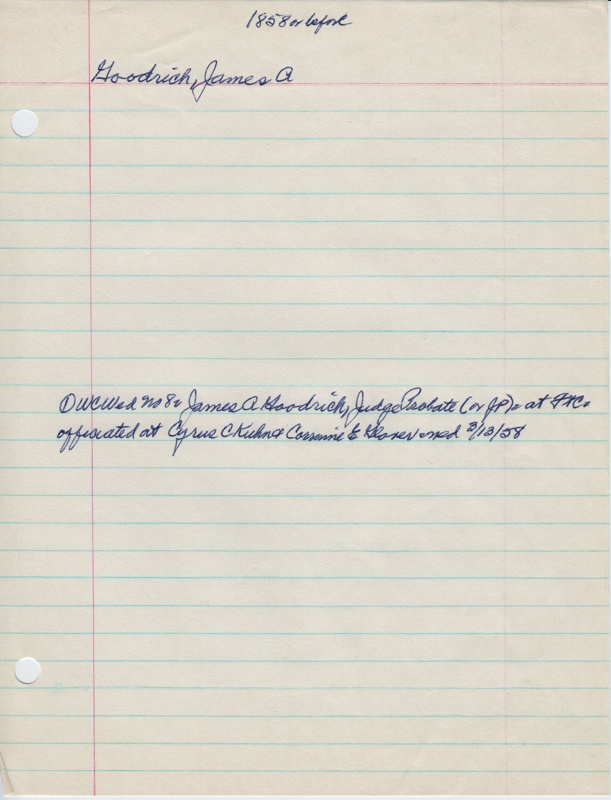 1858 or before
Goodrich, James A
D W C Wed no 8 = James A Goodrich, Judge Probate (or JP) = at Ft C =
officiated at Cyrus C Kuhn & E Glover wed 3/13/58